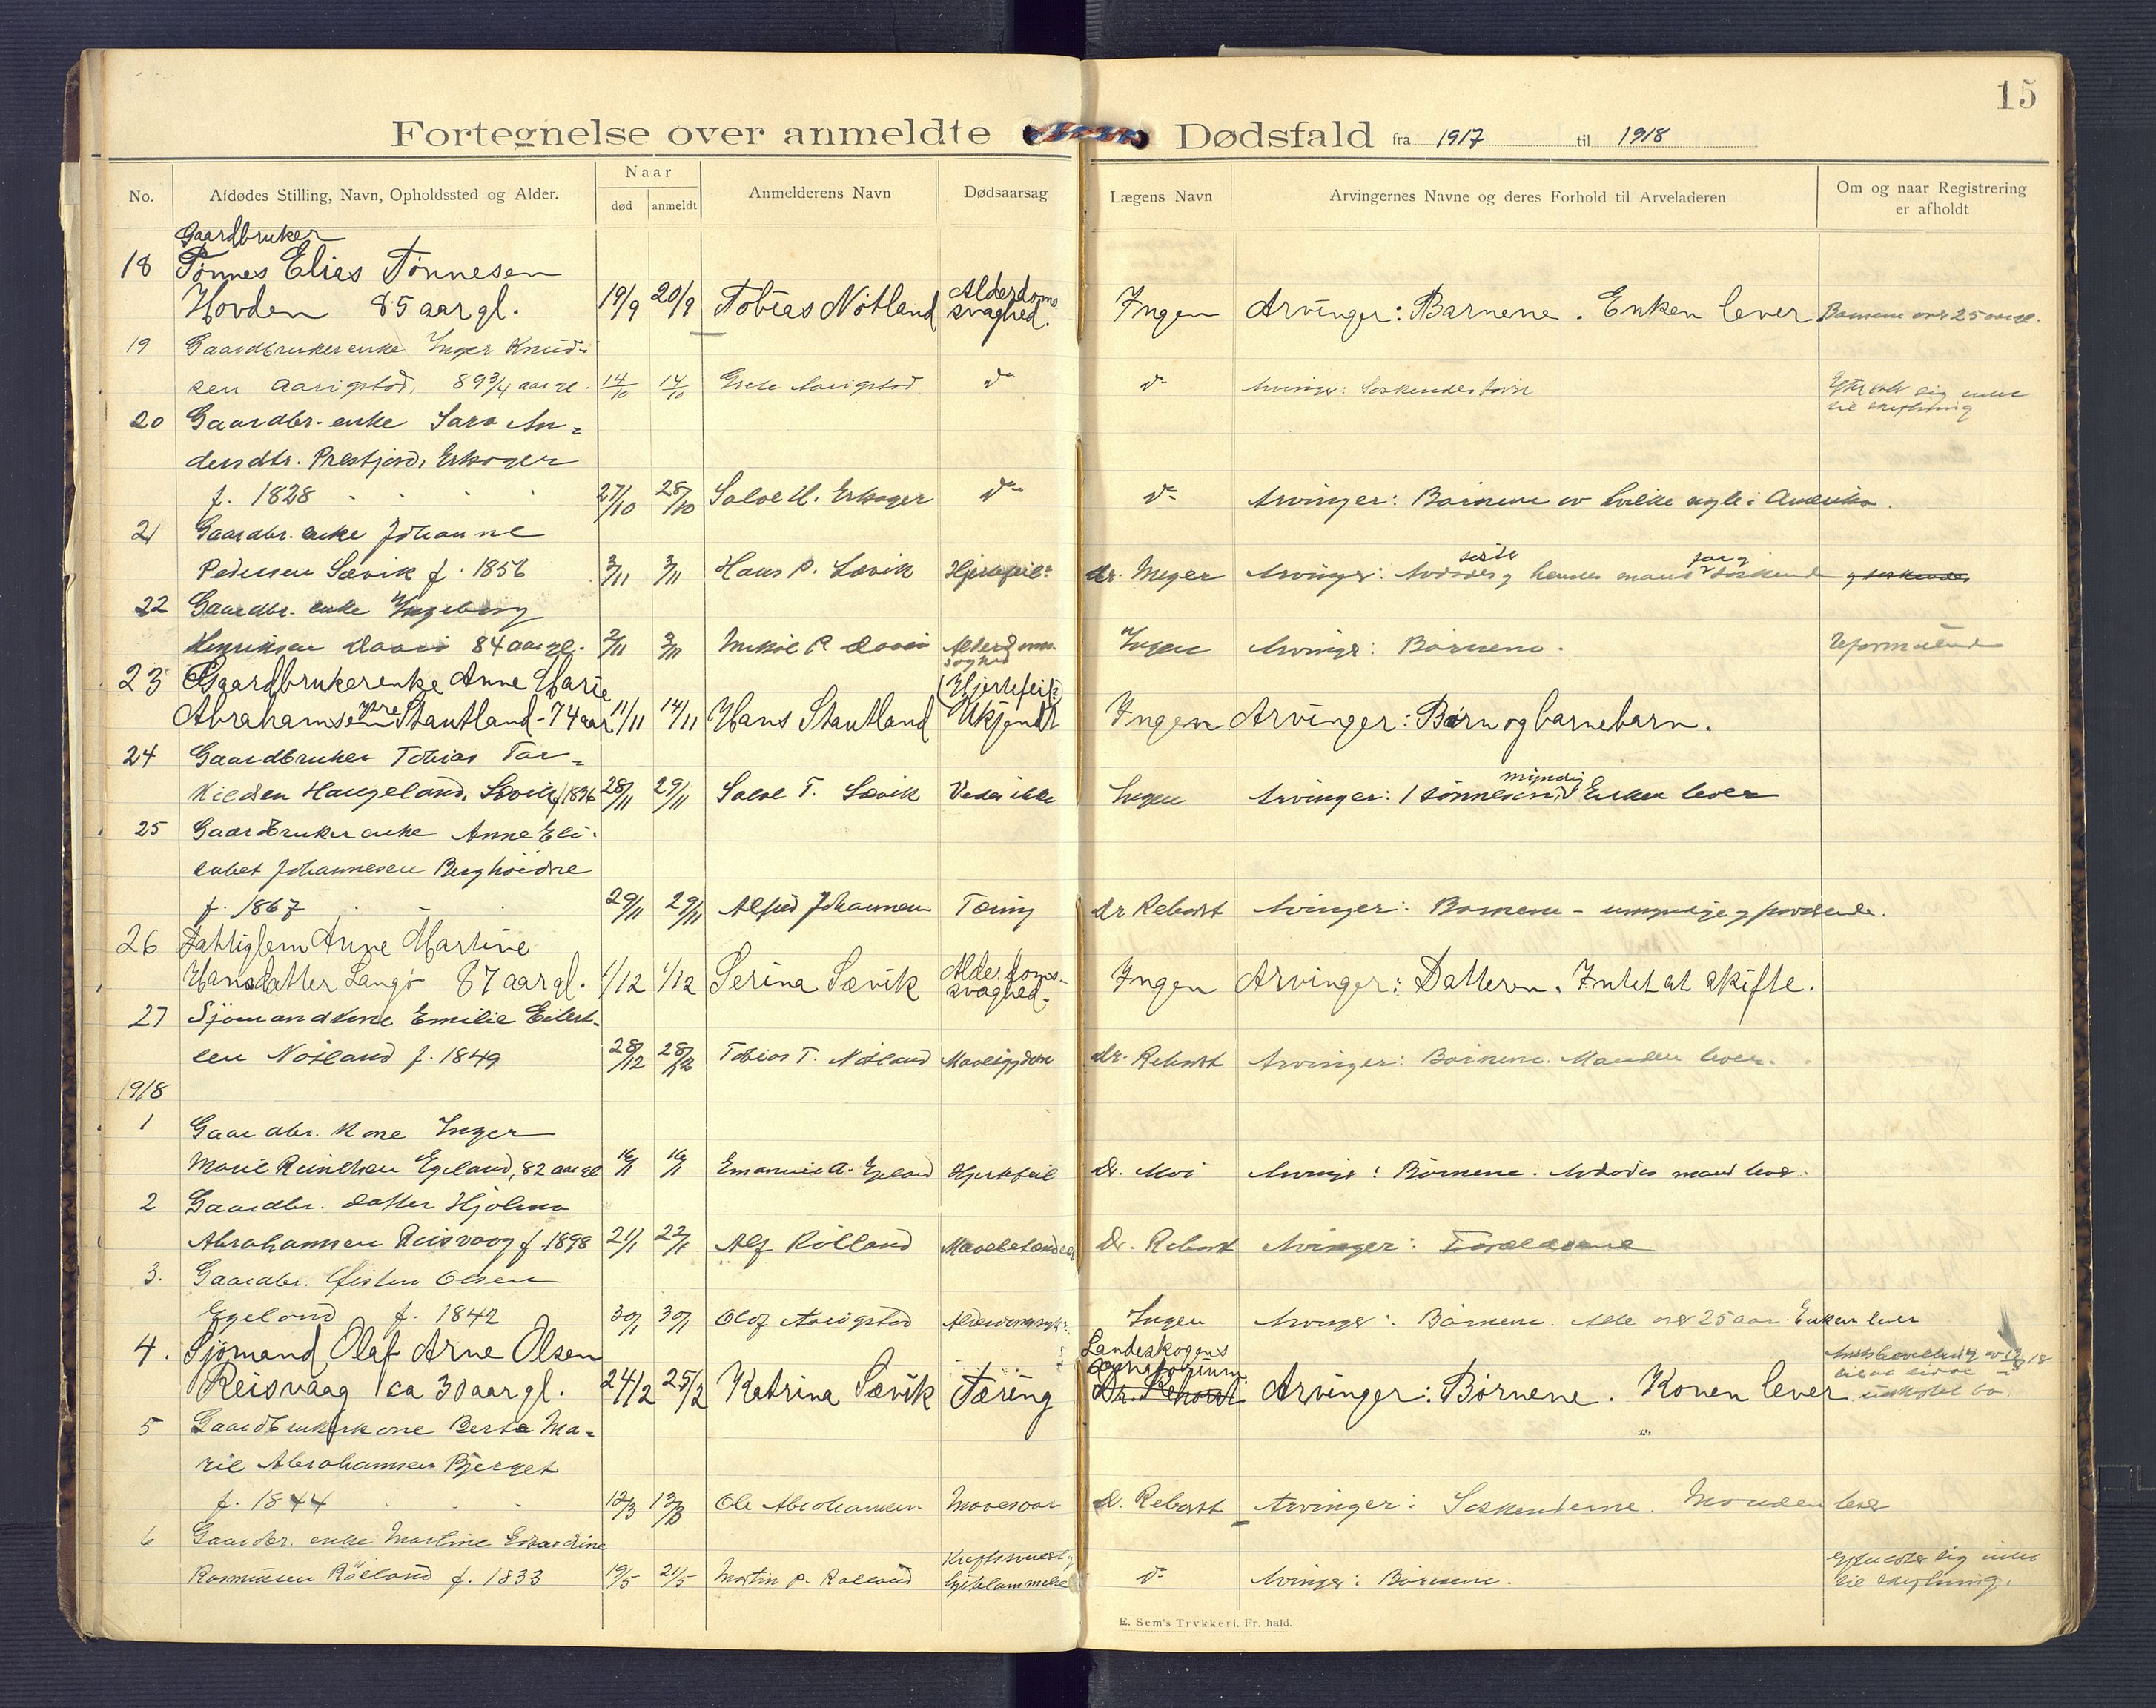 15
Fortegnelse over anmeldte Dødsfald fra 1917 til 1918
No. Afdødes Stilling, Navn, Opholdssted og Alder. Naar død anmeldt Anmelderens Navn Dødsaarsag Lægens Navn Arvingernes Navne og deres Forhold til Arveladeren Om og naar Registrering er afholdt
Gaardbruker
18 Tönnes Elias Tönnesen
Hovden 85 aar gl. 19/9 20/9 Tobias Nötland Alderdoms svaghed. Ingen Arvinger: Barnene. Enken lever Barnene over 25 aar gl.
19 Gaardbrukerenke Inger Knud-
sen Aarigstad, 89 3/4 aar gl. 14/10 14/10 Aarigstad do do Arvinger: Söskendebörn
20 Gaardbr. enke Sara An-
dersdtr. Prestjord, Erkoger
f. 1828 27/10 28/10 Salve H. Erkoger do do Arvinger: Börnene av hvilke nogle i Amerika.
21 Gaardbr. enke Johanne
Pedersen Sævik f. 1856 3/11 3/11 Hans P. Sævik Hjertefeil? dr. Meyer Arvinger: Avdödes og hendes mands söskende
22 Gaardbr. enke Ingeborg
Henriksen 84 aar gl. 2/11 3/11 Mikal P. Alderdoms- Ingen Arvinger: Börnene. Uformuende
23 Gaardbrukerenke Anne Marie (Hjertefeil?)
Abrahamsen ytre Stautland - 74 aar 11/11 14/11 Hans Stautland Ukjendt Ingen Arvinger: Börn og barnebarn.
24 Gaardbruker Tobias Tor-
kildsen Haugeland, Sævik f 1836 28/11 29/11 Salve T. Sævik Vedes ikke Ingen Arvinger: 1 myndig sönnesön. Enken lever
25 Gaardbrukerenke Anne Eli-
sabet Johannesen Berghöidne
f. 1867 29/11 29/11 Alfred Johannesen Tæring dr Rehorst Arvinger: Barnene - umyndige og
26 Fattiglem Anne Martine
Hansdatter Langö 87 aar gl. 1/12 1/12 Serina Sævik Alderdoms- svaghed. Ingen Arvinger: Datteren. Intet at skifte.
27 Sjömandskone Emilie Eilert-
sen Nötland f. 1849 28/12 28/12 Tobias T. Nötland Mavesygdom dr. Rehorst Arvinger: Börnene. Manden lever.
1918
1 Gaardbr. kone Inger
Marie Reinertsen Egeland, 82 aar gl 16/1 16/1 Emanuel A. Egeland Hjertefeil dr. Moi Arvinger: Börnene. Avdödes mand lever.
2 Gaardbr. datter Hjalma
Abrahamsen Reisvaag f. 1898 21/1 22/1 Alf Rölland Mavebetændelse dr. Rehorst Arvinger: Forældrene
3. Gaardbr. Olsen
Egeland f. 1842 30/1 30/1 Olaf Aarigstad Ingen Arvinger: Börnene. Alle over 25 aar. Enken lever
4. Sjömand Olaf Arne Olsen Landeskogens sanatorium.
Reisvaag ca 30 aar gl. 24/2 25/2 Katrina Sævik Tæring Dr. Rehorst Arvinger: Börnene. Konen lever uskiftet bo.
5 Gaardbrukerkone Berta Ma-
rie Abrahamsen Bjerget
f. 1844 12/3 13/3 Ole Abrahamsen Mavesaar dr. Rehorst Arvinger: Söskenderne. Manden lever
6 Gaardbr. enke Martine Edvardine
Rasmussen Rölland f. 1833 19/5 21/5 Martin P. Rölland do Arvinger: Börnene.
E. Sem's Trykkeri, Fr. hald.